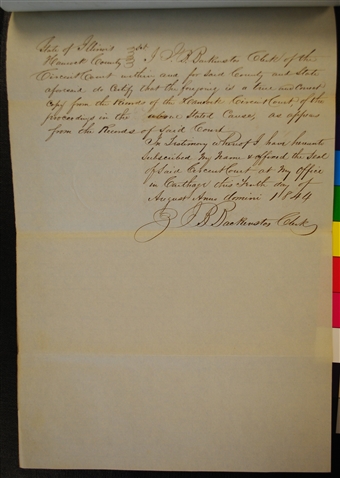 State of Illinois
Hancock County } Sct I J. B. Backenstos Clerk of the
Circuit Court within and for Said County and State
aforesaid do Certify that the foregoing is a true and Correct
Copy from the Records of the Hancock Circuit Court, of the
proceedings in the above Stated Cause, as appears
from the Records of Said Court
In Testimony whereof I have hereunto
Subscribed My Name & affixed the Seal
of Said Circuit Court at My Office
in Carthage this Tenth day of
August Anno domini 1844
J B Backenstos Clerk